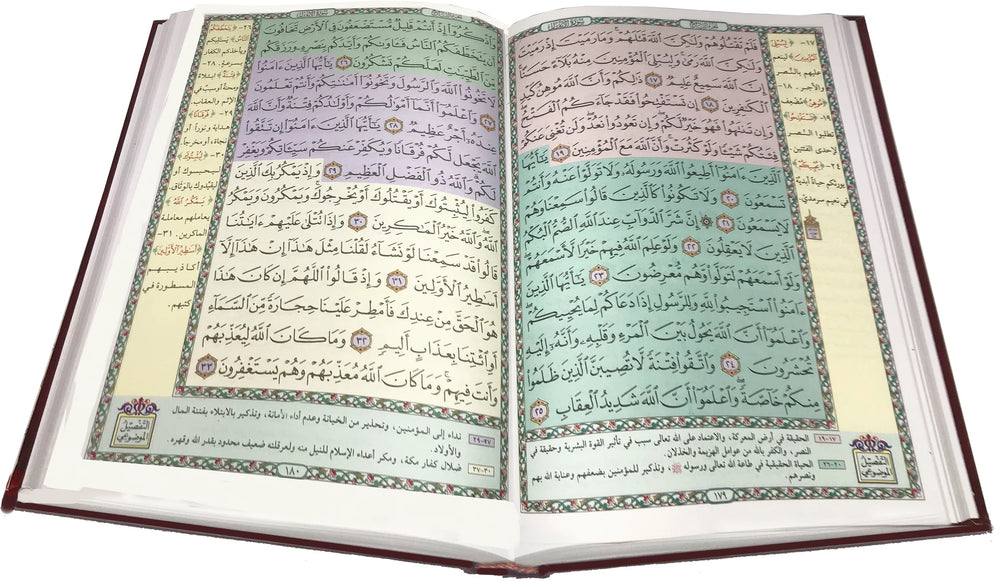 فَلَمْ تَقْتُلُوهُمْ وَلَٰكِنَّ ٱللَّهَ قَتَلَهُمْ وَمَا رَمَيْتَ إِذْ رَمَيْتَ
وَلَٰكِنَّ ٱللَّهَ رَمَىٰ وَلِيُبْلِىَ ٱلْمُؤْمِنِينَ مِنْهُ بَلَآءً حَسَنًا
إِنَّ ٱللَّهَ سَمِيعٌ عَلِيمٌ ١٧ ذَٰلِكُمْ وَأَنَّ ٱللَّهَ مُوهِنُ كَيْدِ
ٱلْكَٰفِرِينَ ١٨ إِن تَسْتَفْتِحُوا۟ فَقَدْ جَآءَكُمُ ٱلْفَتْحُ
وَإِن تَنتَهُوا۟ فَهُوَ خَيْرٌ لَّكُمْ وَإِن تَعُودُوا۟ نَعُدْ وَلَن تُغْنِىَ عَنكُمْ
فِئَتُكُمْ شَيْـًٔا وَلَوْ كَثُرَتْ وَأَنَّ ٱللَّهَ مَعَ ٱلْمُؤْمِنِينَ ١٩ يَٰٓأَيُّهَا
ٱلَّذِينَ ءَامَنُوٓا۟ أَطِيعُوا۟ ٱللَّهَ وَرَسُولَهُۥ وَلَا تَوَلَّوْا۟ عَنْهُ وَأَنتُمْ
تَسْمَعُونَ ٢٠ وَلَا تَكُونُوا۟ كَٱلَّذِينَ قَالُوا۟ سَمِعْنَا وَهُمْ
لَا يَسْمَعُونَ ٢١ ۞ إِنَّ شَرَّ ٱلدَّوَآبِّ عِندَ ٱللَّهِ ٱلصُّمُّ ٱلْبُكْمُ
ٱلَّذِينَ لَا يَعْقِلُونَ ٢٢ وَلَوْ عَلِمَ ٱللَّهُ فِيهِمْ خَيْرًا لَّأَسْمَعَهُمْ
وَلَوْ أَسْمَعَهُمْ لَتَوَلَّوا۟ وَّهُم مُّعْرِضُونَ ٢٣ يَٰٓأَيُّهَا ٱلَّذِينَ
ءَامَنُوا۟ ٱسْتَجِيبُوا۟ لِلَّهِ وَلِلرَّسُولِ إِذَا دَعَاكُمْ لِمَا يُحْيِيكُمْ
وَٱعْلَمُوٓا۟ أَنَّ ٱللَّهَ يَحُولُ بَيْنَ ٱلْمَرْءِ وَقَلْبِهِۦ وَأَنَّهُۥٓ إِلَيْهِ
تُحْشَرُونَ ٢٤ وَٱتَّقُوا۟ فِتْنَةً لَّا تُصِيبَنَّ ٱلَّذِينَ ظَلَمُوا۟
مِنكُمْ خَآصَّةً وَٱعْلَمُوٓا۟ أَنَّ ٱللَّهَ شَدِيدُ ٱلْعِقَابِ ٢٥
١٧-١٩ الحقيقة في أرض المعركة، والاعتماد على الله تعالى سبب في تأثير القوة البشرية وحقيقة في
النصر، والكفر بالله من عوامل الهزيمة والخذلان.
٢٠-٢٦ الحياة الحقيقية في طاعة الله تعالى ورسوله ﷺ، وتذكير للمؤمنين بضعفهم وعناية الله بهم
ونصرهم.
التفصيل
الموضوعي
١٧٩
وَٱذْكُرُوٓا۟ إِذْ أَنتُمْ قَلِيلٌ مُّسْتَضْعَفُونَ فِى ٱلْأَرْضِ تَخَافُونَ
أَن يَتَخَطَّفَكُمُ ٱلنَّاسُ فَـَٔاوَىٰكُمْ وَأَيَّدَكُم بِنَصْرِهِۦ وَرَزَقَكُم
مِّنَ ٱلطَّيِّبَٰتِ لَعَلَّكُمْ تَشْكُرُونَ ٢٦ يَٰٓأَيُّهَا ٱلَّذِينَ ءَامَنُوا۟
لَا تَخُونُوا۟ ٱللَّهَ وَٱلرَّسُولَ وَتَخُونُوٓا۟ أَمَٰنَٰتِكُمْ وَأَنتُمْ تَعْلَمُونَ
٢٧ وَٱعْلَمُوٓا۟ أَنَّمَآ أَمْوَٰلُكُمْ وَأَوْلَٰدُكُمْ فِتْنَةٌ وَأَنَّ ٱللَّهَ
عِندَهُۥٓ أَجْرٌ عَظِيمٌ ٢٨ يَٰٓأَيُّهَا ٱلَّذِينَ ءَامَنُوٓا۟ إِن تَتَّقُوا۟
ٱللَّهَ يَجْعَل لَّكُمْ فُرْقَانًا وَيُكَفِّرْ عَنكُمْ سَيِّـَٔاتِكُمْ وَيَغْفِرْ
لَكُمْ وَٱللَّهُ ذُو ٱلْفَضْلِ ٱلْعَظِيمِ ٢٩ وَإِذْ يَمْكُرُ بِكَ ٱلَّذِينَ
كَفَرُوا۟ لِيُثْبِتُوكَ أَوْ يَقْتُلُوكَ أَوْ يُخْرِجُوكَ وَيَمْكُرُونَ وَيَمْكُرُ
ٱللَّهُ وَٱللَّهُ خَيْرُ ٱلْمَٰكِرِينَ ٣٠ وَإِذَا تُتْلَىٰ عَلَيْهِمْ ءَايَٰتُنَا
قَالُوا۟ قَدْ سَمِعْنَا لَوْ نَشَآءُ لَقُلْنَا مِثْلَ هَٰذَآ إِنْ هَٰذَآ إِلَّآ
أَسَٰطِيرُ ٱلْأَوَّلِينَ ٣١ وَإِذْ قَالُوا۟ ٱللَّهُمَّ إِن كَانَ هَٰذَا
هُوَ ٱلْحَقَّ مِنْ عِندِكَ فَأَمْطِرْ عَلَيْنَا حِجَارَةً مِّنَ ٱلسَّمَآءِ
أَوِ ٱئْتِنَا بِعَذَابٍ أَلِيمٍ ٣٢ وَمَا كَانَ ٱللَّهُ لِيُعَذِّبَهُمْ
وَأَنتَ فِيهِمْ وَمَا كَانَ ٱللَّهُ مُعَذِّبَهُمْ وَهُمْ يَسْتَغْفِرُونَ ٣٣
٢٧-٢٩ نداء إلى المؤمنين، وتحذير من الخيانة وعدم أداء الأمانة، وتذكير بالابتلاء بفتنة المال
والأولاد.
٣٠-٣٧ ضلال كفار مكة، ومكر أعداء الإسلام للنيل منه ولعرقلته ضعيف محدود بقدر الله وقهره.
التفصيل
الموضوعي
١٨٠